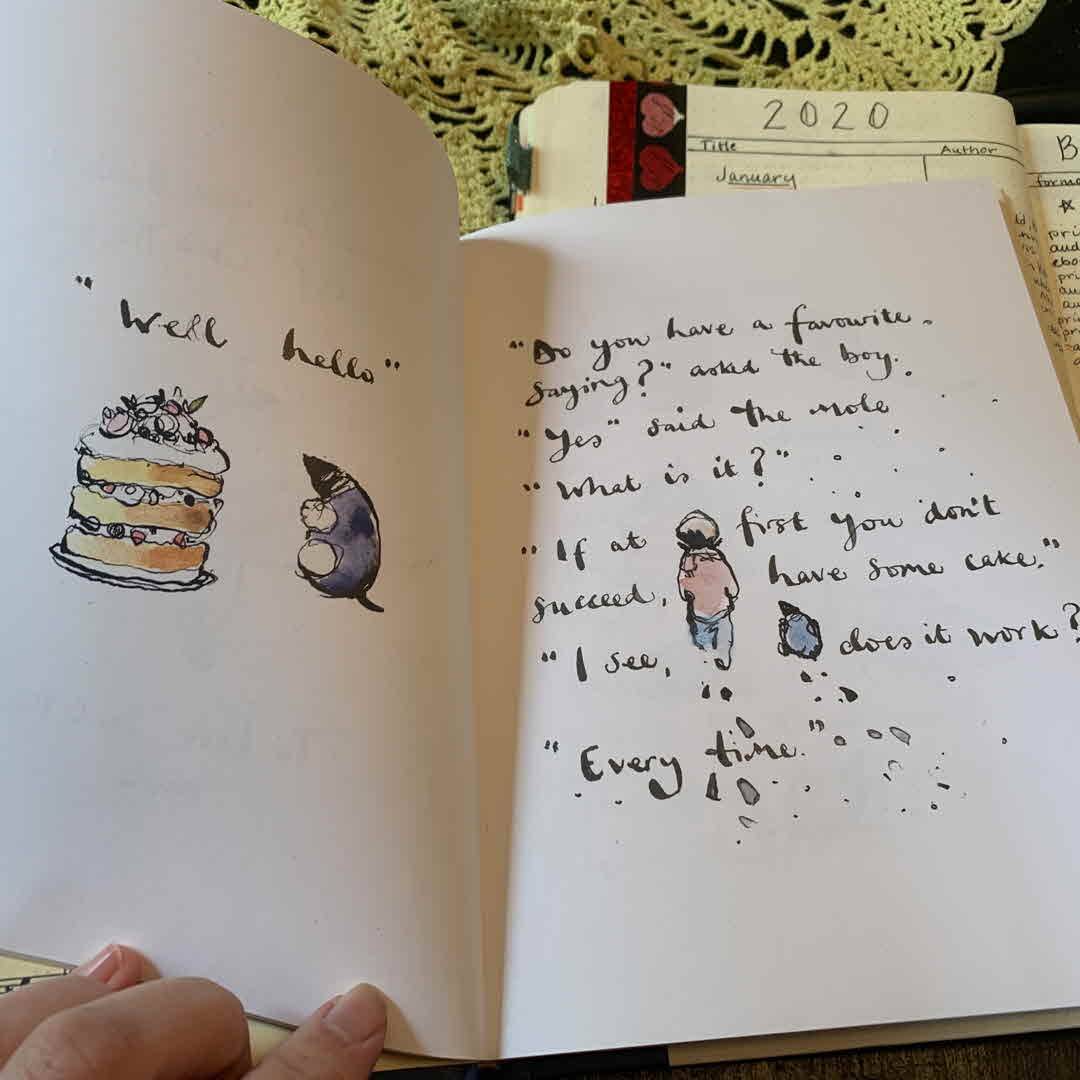 "Well hello"
"Do you have a favourite
saying?" asked the boy.
"Yes" said the mole
"What is it?"
"If at first you don't
succeed, have some cake."
"I see, does it work?
"Every time."
2020
Title Author
January
B
forma
pri
aud
ebo
pri
au
au
pri